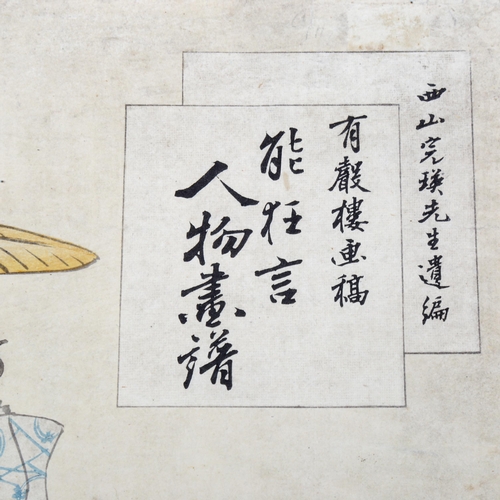 西山完瑛先生遺編
有殻楼画稿
能狂言
人物畫譜